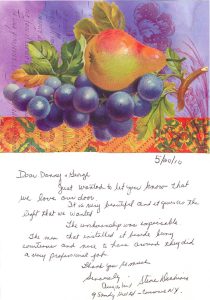 5/20/10
Dear Danny & George
Just wanted to let you know that
we love our door.
It is very beautiful and gives us the
light that we wanted.
The workmanship was impeccable.
The men that installed it beside being
courteous and nice to have around they did
a very professional job.
Thank you so much
Sincerely